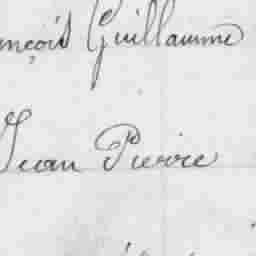 nçois Guillaume
Jean Pierre